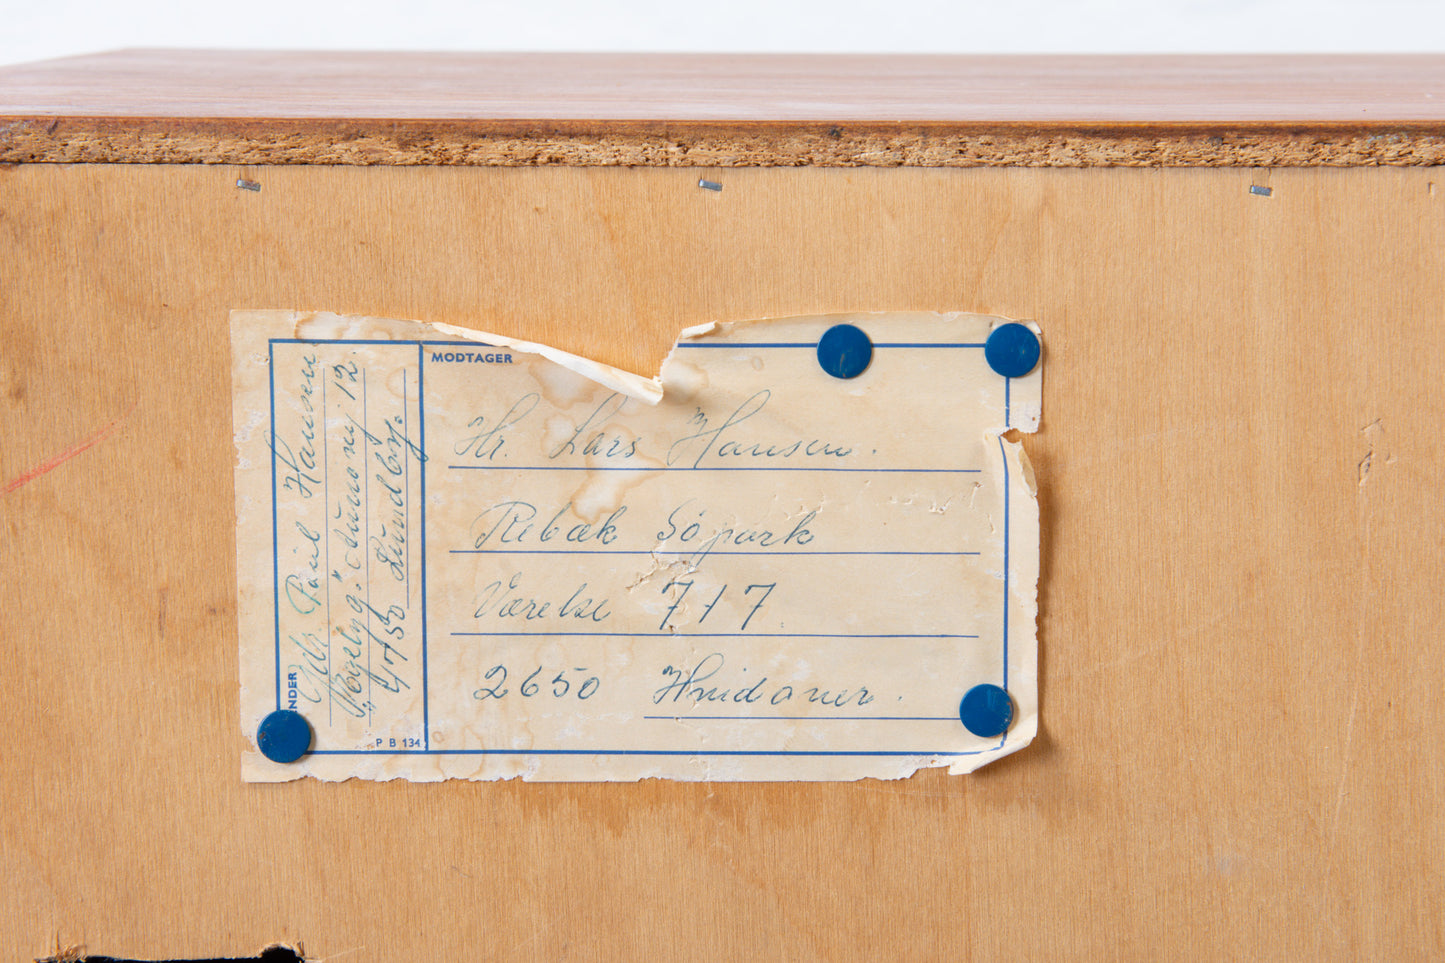 MODTAGER
Hr. Lars Hansen.
Rebæk Söpark
Værelse 717
2650 Hvidovre.
NDER
Poul Hansen
12
4750 Lundby.
P B 134